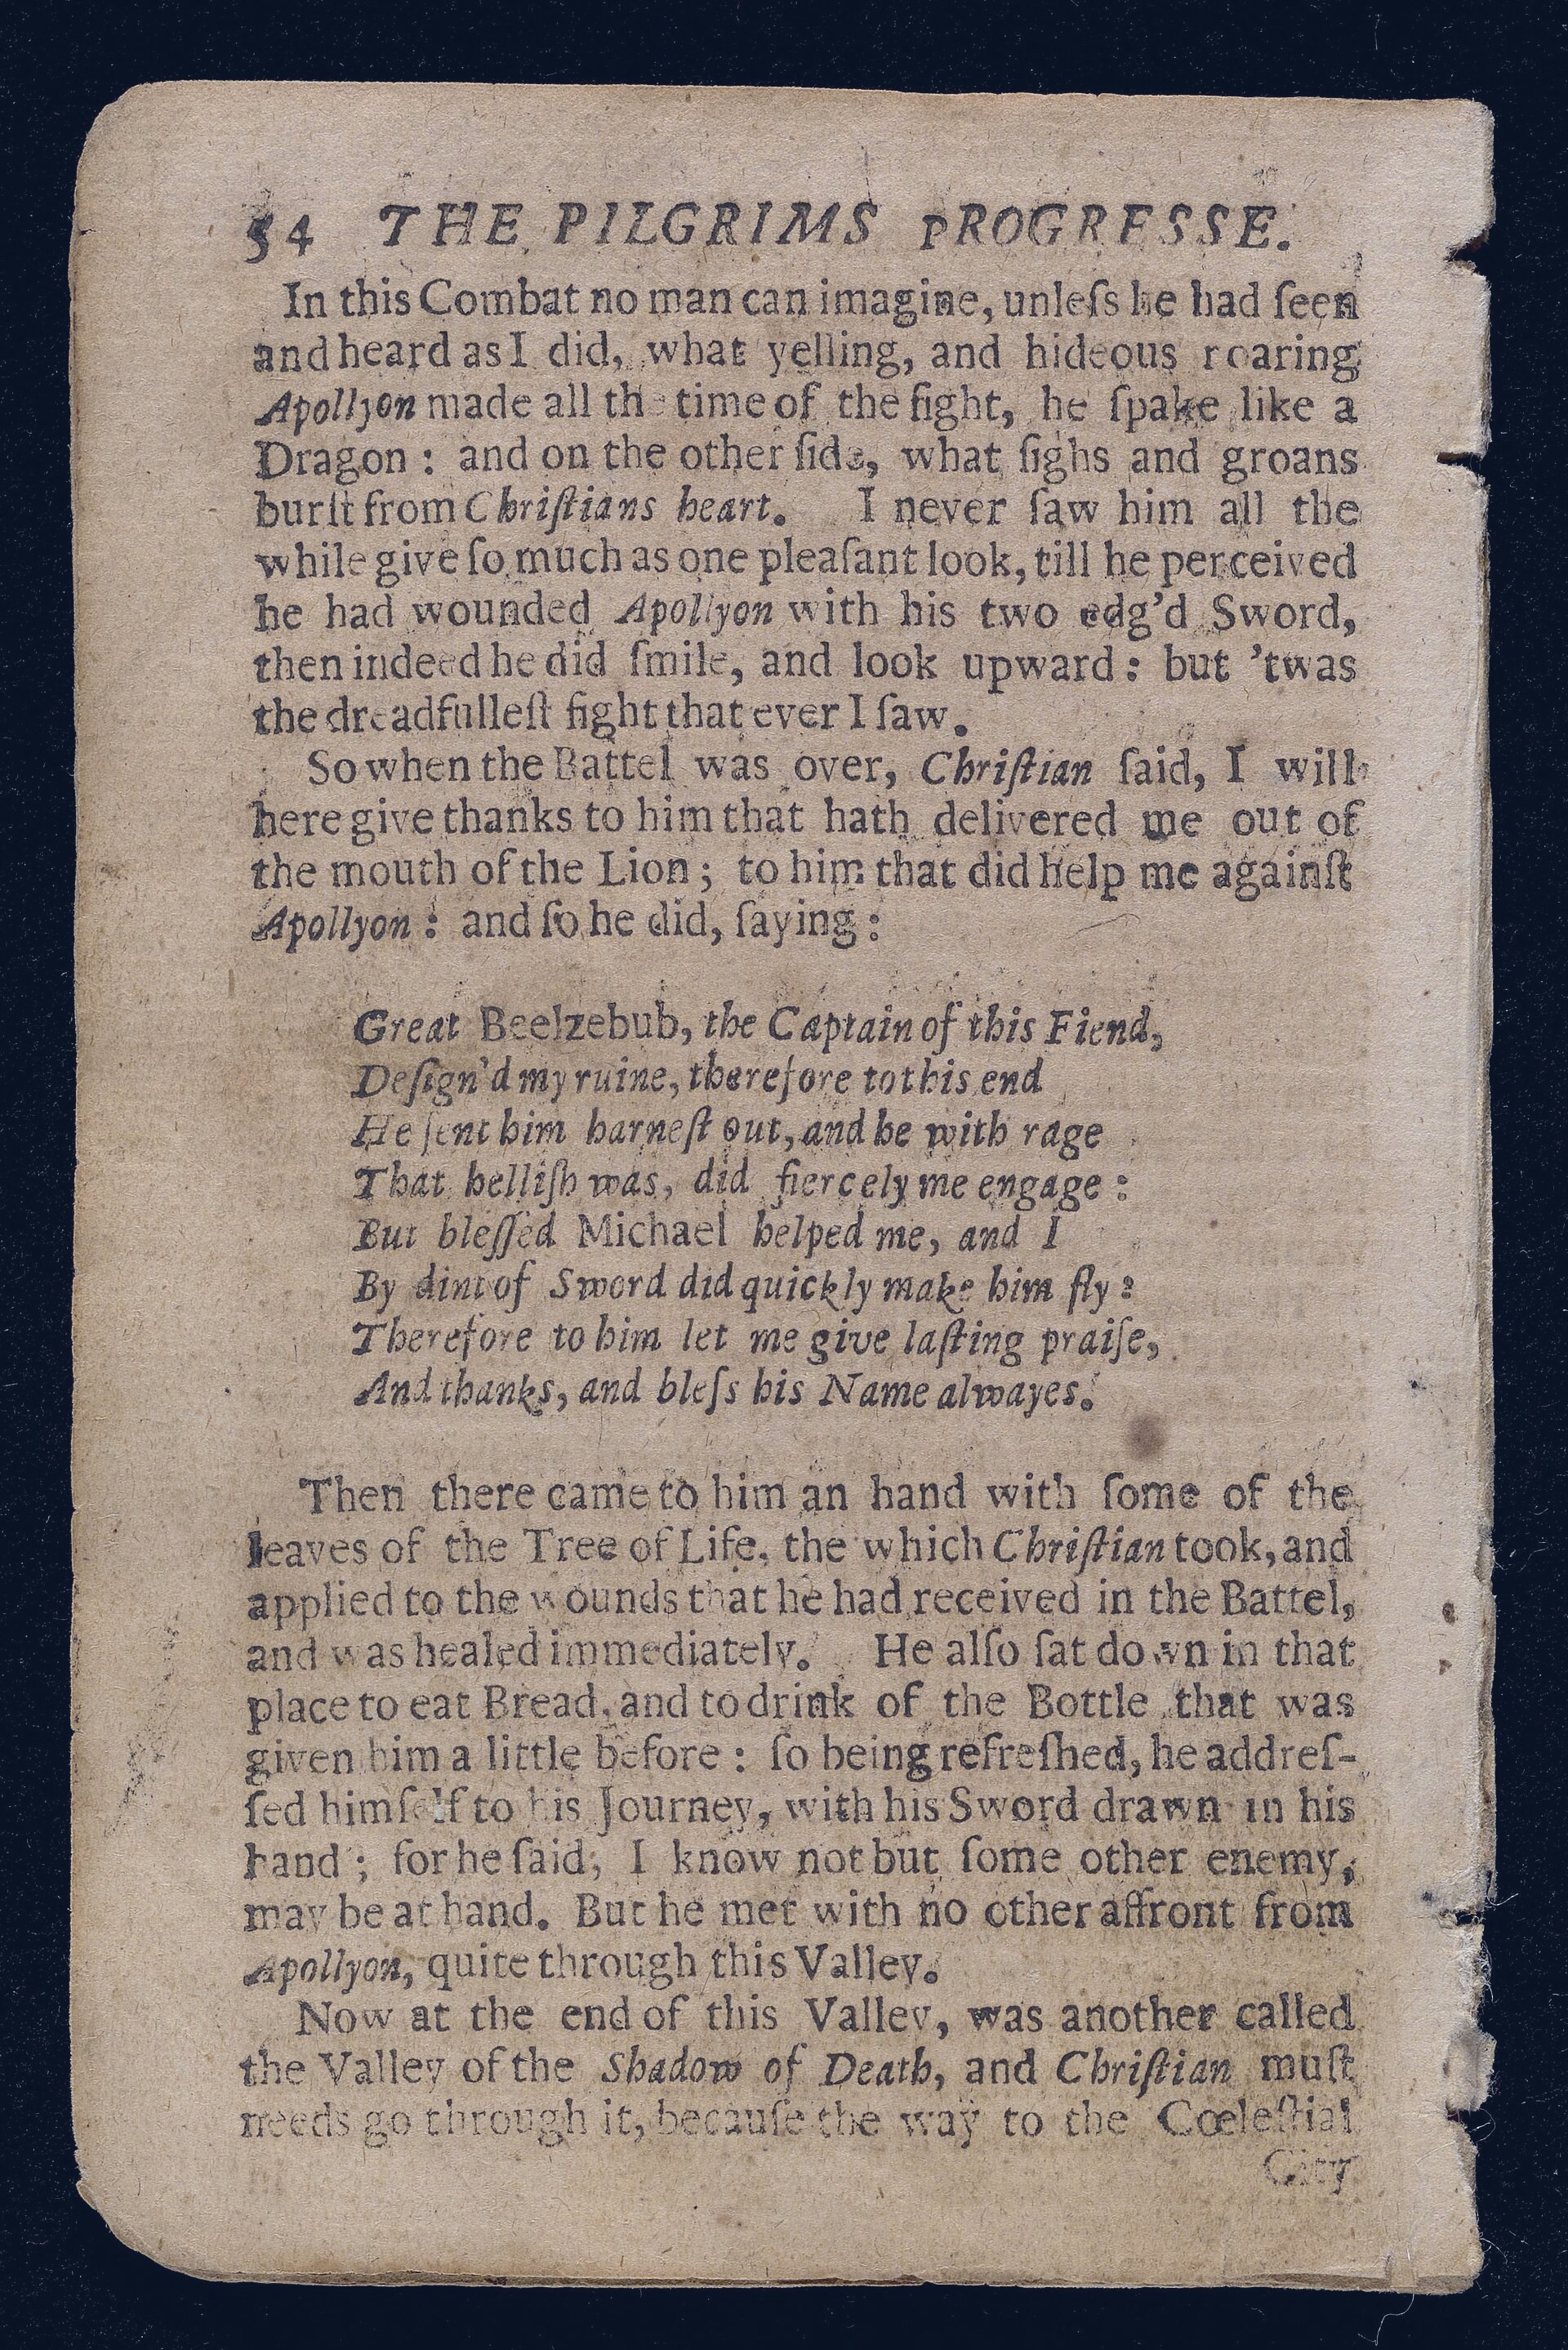 54 THE PILGRIMS PROGRESSE.
In this Combat no man can imagine, unleſs he had ſeen
and heard as I did, what yelling, and hideous roaring
Apollyon made all the time of the fight, he ſpake like a
Dragon : and on the other ſide, what ſighs and groans
burſt from Chriſtians heart. I never ſaw him all the
while give ſo much as one pleaſant look, till he perceived
he had wounded Apollyon with his two edg'd Sword,
then indeed he did ſmile, and look upward : but 'twas
the dreadfulleſt fight that ever I ſaw.
So when the Battel was over, Chriſtian ſaid, I will
here give thanks to him that hath delivered me out of
the mouth of the Lion ; to him that did help me againſt
Apollyon : and ſo he did, ſaying :
Great Beelzebub, the Captain of this Fiend,
Deſign'd my ruine, therefore to this end
He ſent him harneſt out, and he with rage
That helliſh was, did fiercely me engage :
But bleſſed Michael helped me, and I
By dint of Sword did quickly make him fly :
Therefore to him let me give laſting praiſe,
And thanks, and bleſs his Name alwayes.
Then there came to him an hand with ſome of the
leaves of the Tree of Life, the which Chriſtian took, and
applied to the wounds that he had received in the Battel,
and was healed immediately. He alſo ſat down in that
place to eat Bread, and to drink of the Bottle that was
given him a little before : ſo being refreſhed, he addreſ-
ſed himſelf to his Journey, with his Sword drawn in his
hand ; for he ſaid, I know not but ſome other enemy,
may be at hand. But he met with no other affront from
Apollyon, quite through this Valley.
Now at the end of this Valley, was another called
the Valley of the Shadow of Death, and Chriſtian muſt
needs go through it, becauſe the way to the Cœleſtial
City